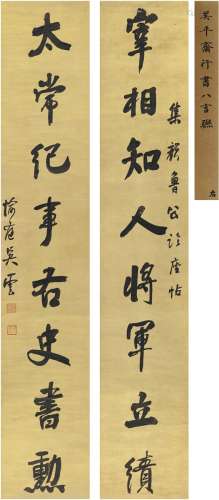 宰相知人將軍立績
集顏魯公論座帖
太常紀事右史書勲
愉庭吳雲
吴平齋行書八言聯
左